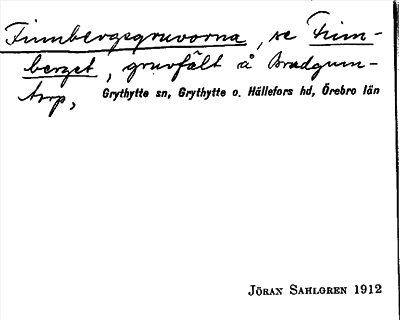 Finnbergsgruvorna, se Finn-
berget, gruvfält å Bredgum-
torp, Grythytte sn, Grythytte o. Hällefors hd, Örebro län
JÖRAN SAHLGREN 1912